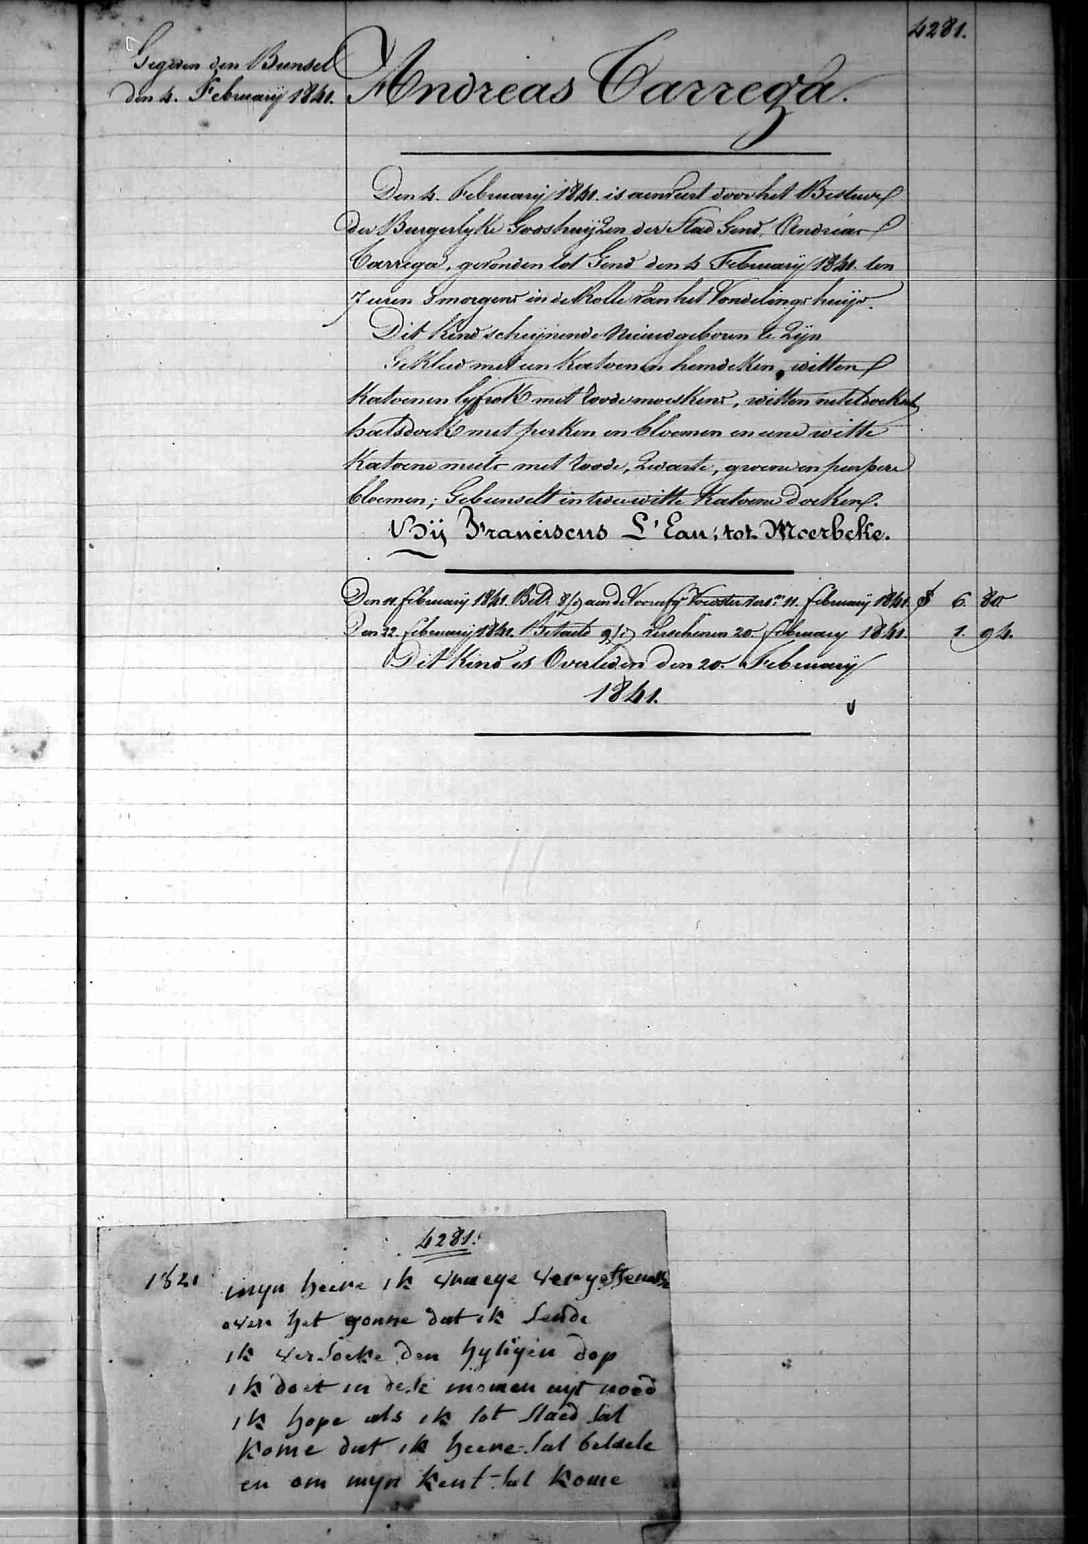 4281.
Gegeven den Bunsel
den 4. February 1841.
Andreas Carrega.
Den 4. February 1841. is aenveert door het Bestuur
der Burgerlyke Godshuijzen der Stad Gend, Andréas
Carrega, gevonden tot Gend den 4 February 1841. ten
7 uren S morgens in de Rolle van het Vondelings huijs.
Dit Kind scheijnende Nieuwgeboren te Zijn
Gekleed met een Katoenen hemdeken, witten
Katoenen lyfrok met roode moeskens, witten neteldoeken
halsdoek met perken en bloemen en eene witte
Katoene muts met roode, Zwarte, groene en purpere
bloemen; Gebunselt in twee witte Katoene doeken.
Bij Franciscus L'Eau; tot Moerbeke.
Den 11 february 1841. Bet. 8/ aen de Voorsz. 11. february 1841. f 6. 80
Den 22. february 1841. Betaeld 9/ Verschenen 20. february 1841. 1. 94.
Dit Kind is Overleden den 20. February
1841.
4281.
1821 mijn heere ik vraege vergeffenis
over het gonne dat ik sende
ik versoeke den hyligen dop
ik doet in dese momen uyt nood
ik hope als ik tot staed sal
kome dat ik heere sal betaele
en om myn kent sal kome